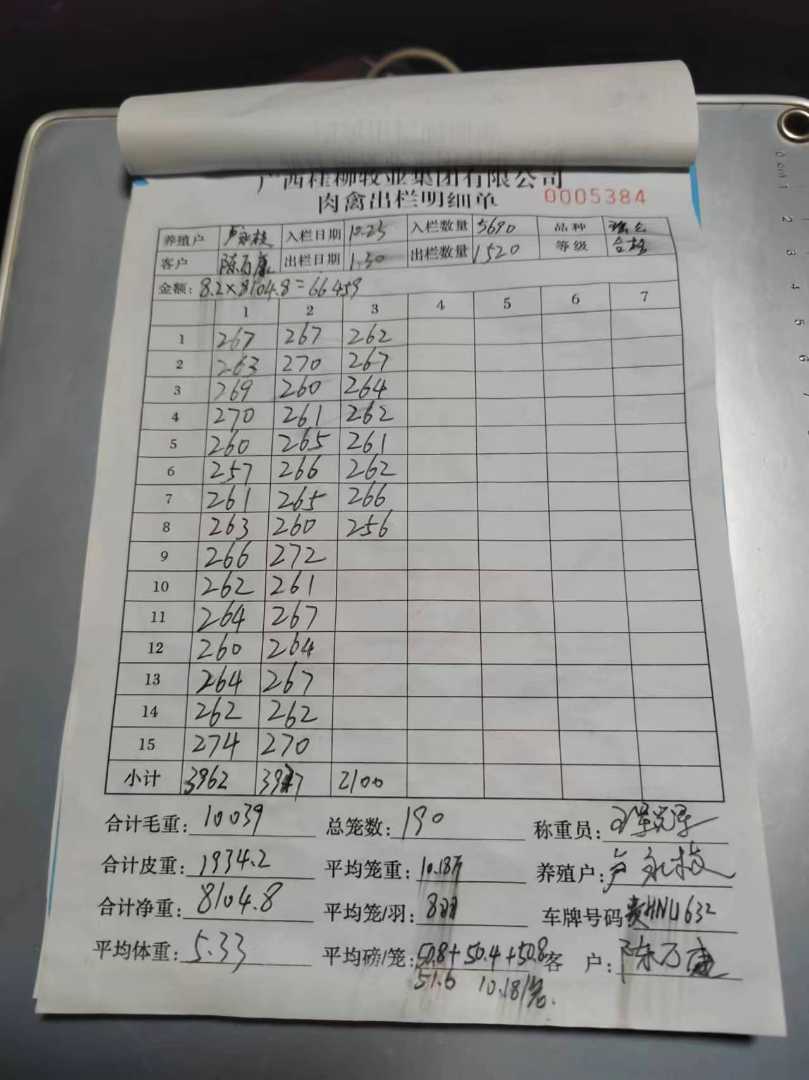 广西桂柳牧业集团有限公司
肉禽出栏明细单 0005384
养殖户 卢永枝 入栏日期 10.25 入栏数量 5690 品种
客户 陈万康 出栏日期 1.30 出栏数量 1520 等级 合格
金额: 8.2×8104.8=66459
1 2 3 4 5 6 7
1 267 267 262
2 263 270 267
3 269 260 264
4 270 261 262
5 260 265 261
6 257 266 262
7 261 265 266
8 263 260 256
9 266 272
10 262 261
11 264 267
12 260 264
13 264 267
14 262 262
15 274 270
小计 3962 3977 2100
合计毛重: 10039 总笼数: 190 称重员:
合计皮重: 1934.2 平均笼重: 10.18斤 养殖户: 卢永枝
合计净重: 8104.8 平均笼/羽: 8羽 车牌号码 贵HNU632
平均体重: 5.33 平均磅/笼: 50.8+50.4+50.8 客 户: 陈万康
51.6 10.18/笼.